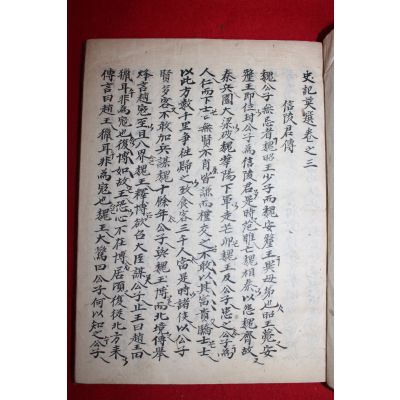 史記英選卷之三
信陵君傳
魏公子無忌者魏昭王少子而魏安釐王異母弟也昭王薨安
釐王即位封公子爲信陵君是時范雎亡魏相秦以怨魏齊故
秦兵圍大梁破魏華陽下軍走芒卯魏王及公子患之公子爲
人仁而下士士無賢不肖皆謙而禮交之不敢以其富貴驕士士
以此方數千里爭往歸之致食客三千人當是時諸侯以公子
賢多客不敢加兵謀魏十餘年公子與魏王博而北境傳擧
烽言趙寇至且入界魏王釋博欲召大臣謀公子止王曰趙王田
獵耳非爲寇也復博如故王恐心不在博居頃復從北方來
傳言曰趙王獵耳非爲寇也魏王大驚曰公子何以知之公子